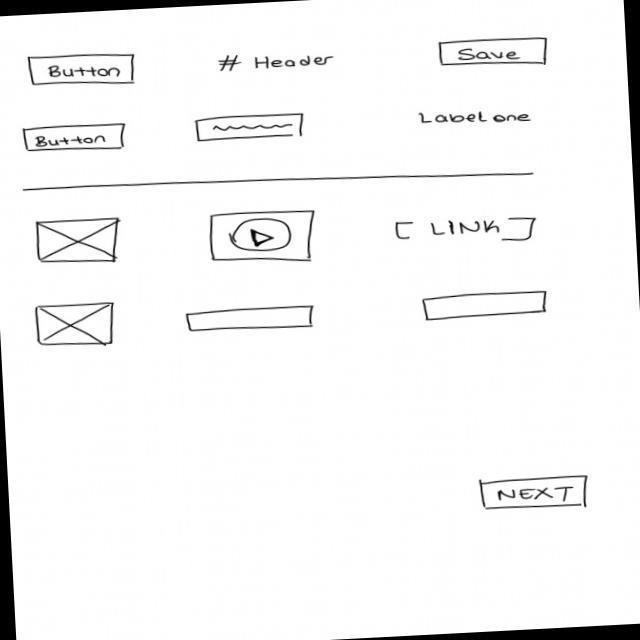 Button # Header Save
Button Label one
[ LINK ]
NEXT